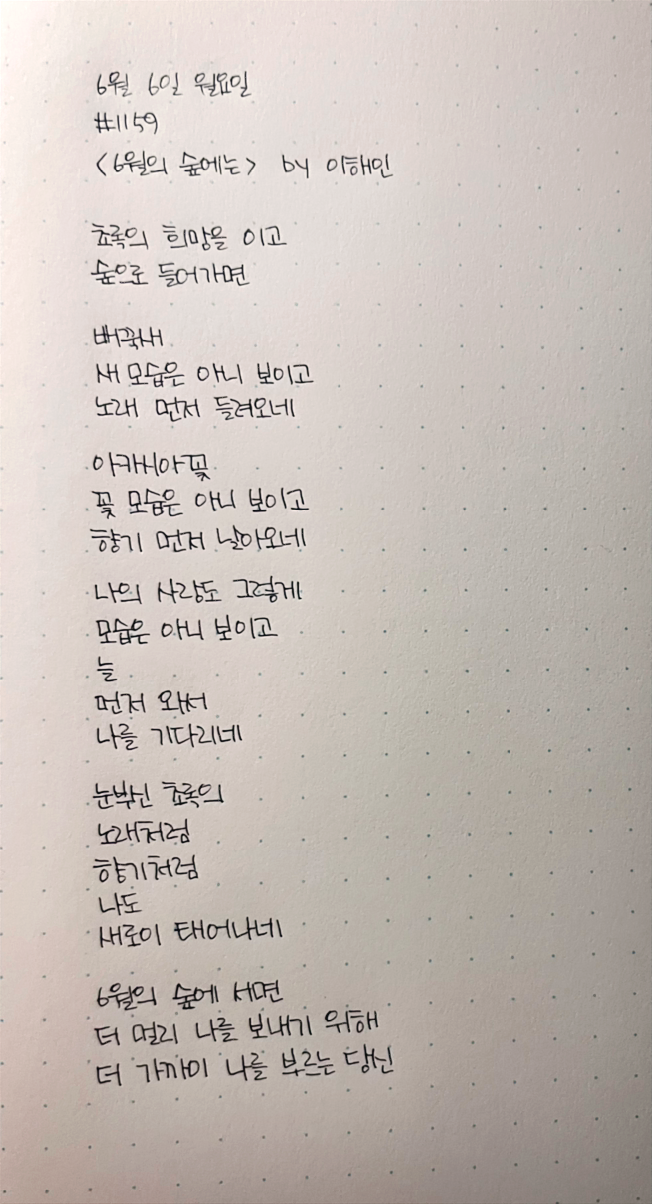 6월 6일 월요일
#1159
<6월의 숲에는> by 이해인
초록의 희망을 이고
숲으로 들어가면
뻐꾹새
새 모습은 아니 보이고
노래 먼저 들려오네
아카시아꽃
꽃 모습은 아니 보이고
향기 먼저 날아오네
나의 사랑도 그렇게
모습은 아니 보이고
늘
먼저 와서
나를 기다리네
눈부신 초록의
노래처럼
향기처럼
나도
새로이 태어나네
6월의 숲에 서면
더 멀리 나를 보내기 위해
더 가까이 나를 부르는 당신